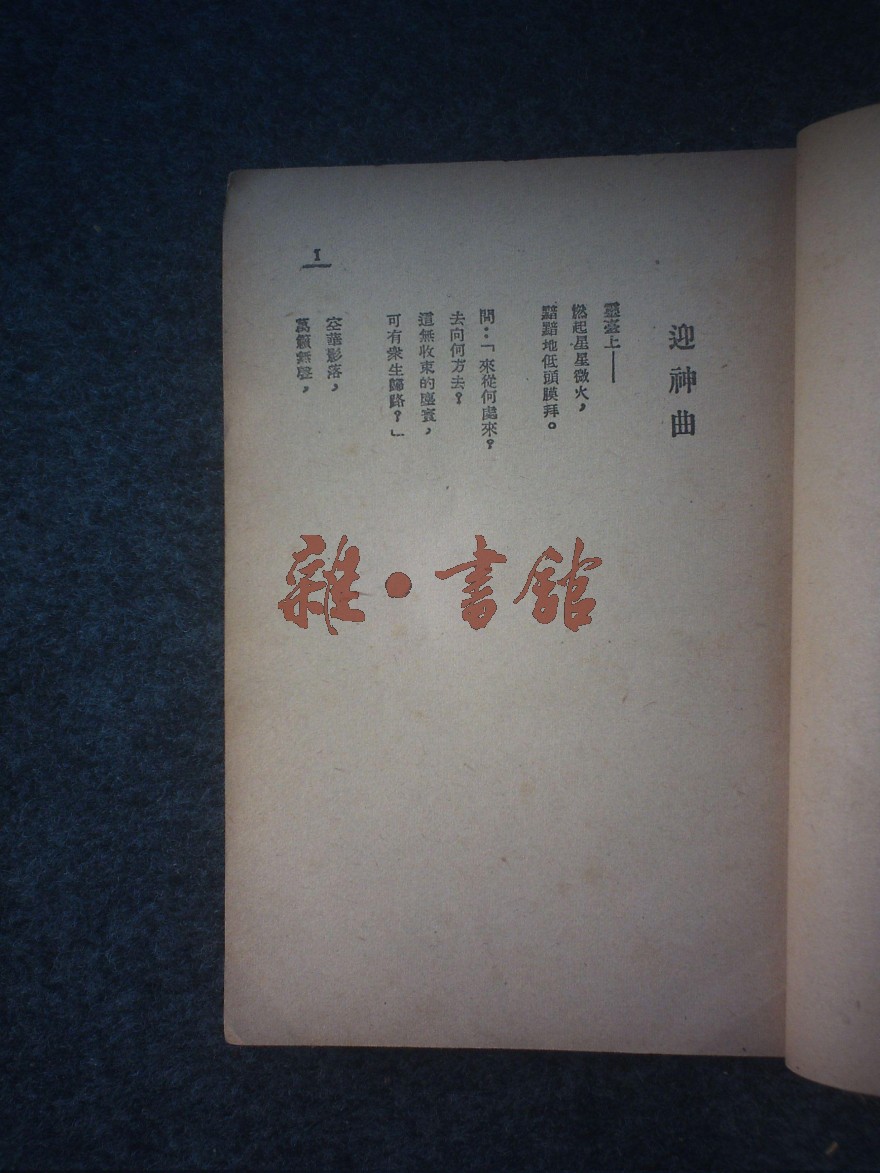 迎神曲
靈臺上——
燃起星星微火，
黯黯地低頭膜拜。
問：「來從何處來？
去向何方去？
這無收束的塵寰，
可有衆生歸路？」
空華影落，
萬籟無聲，
1
雜·書館